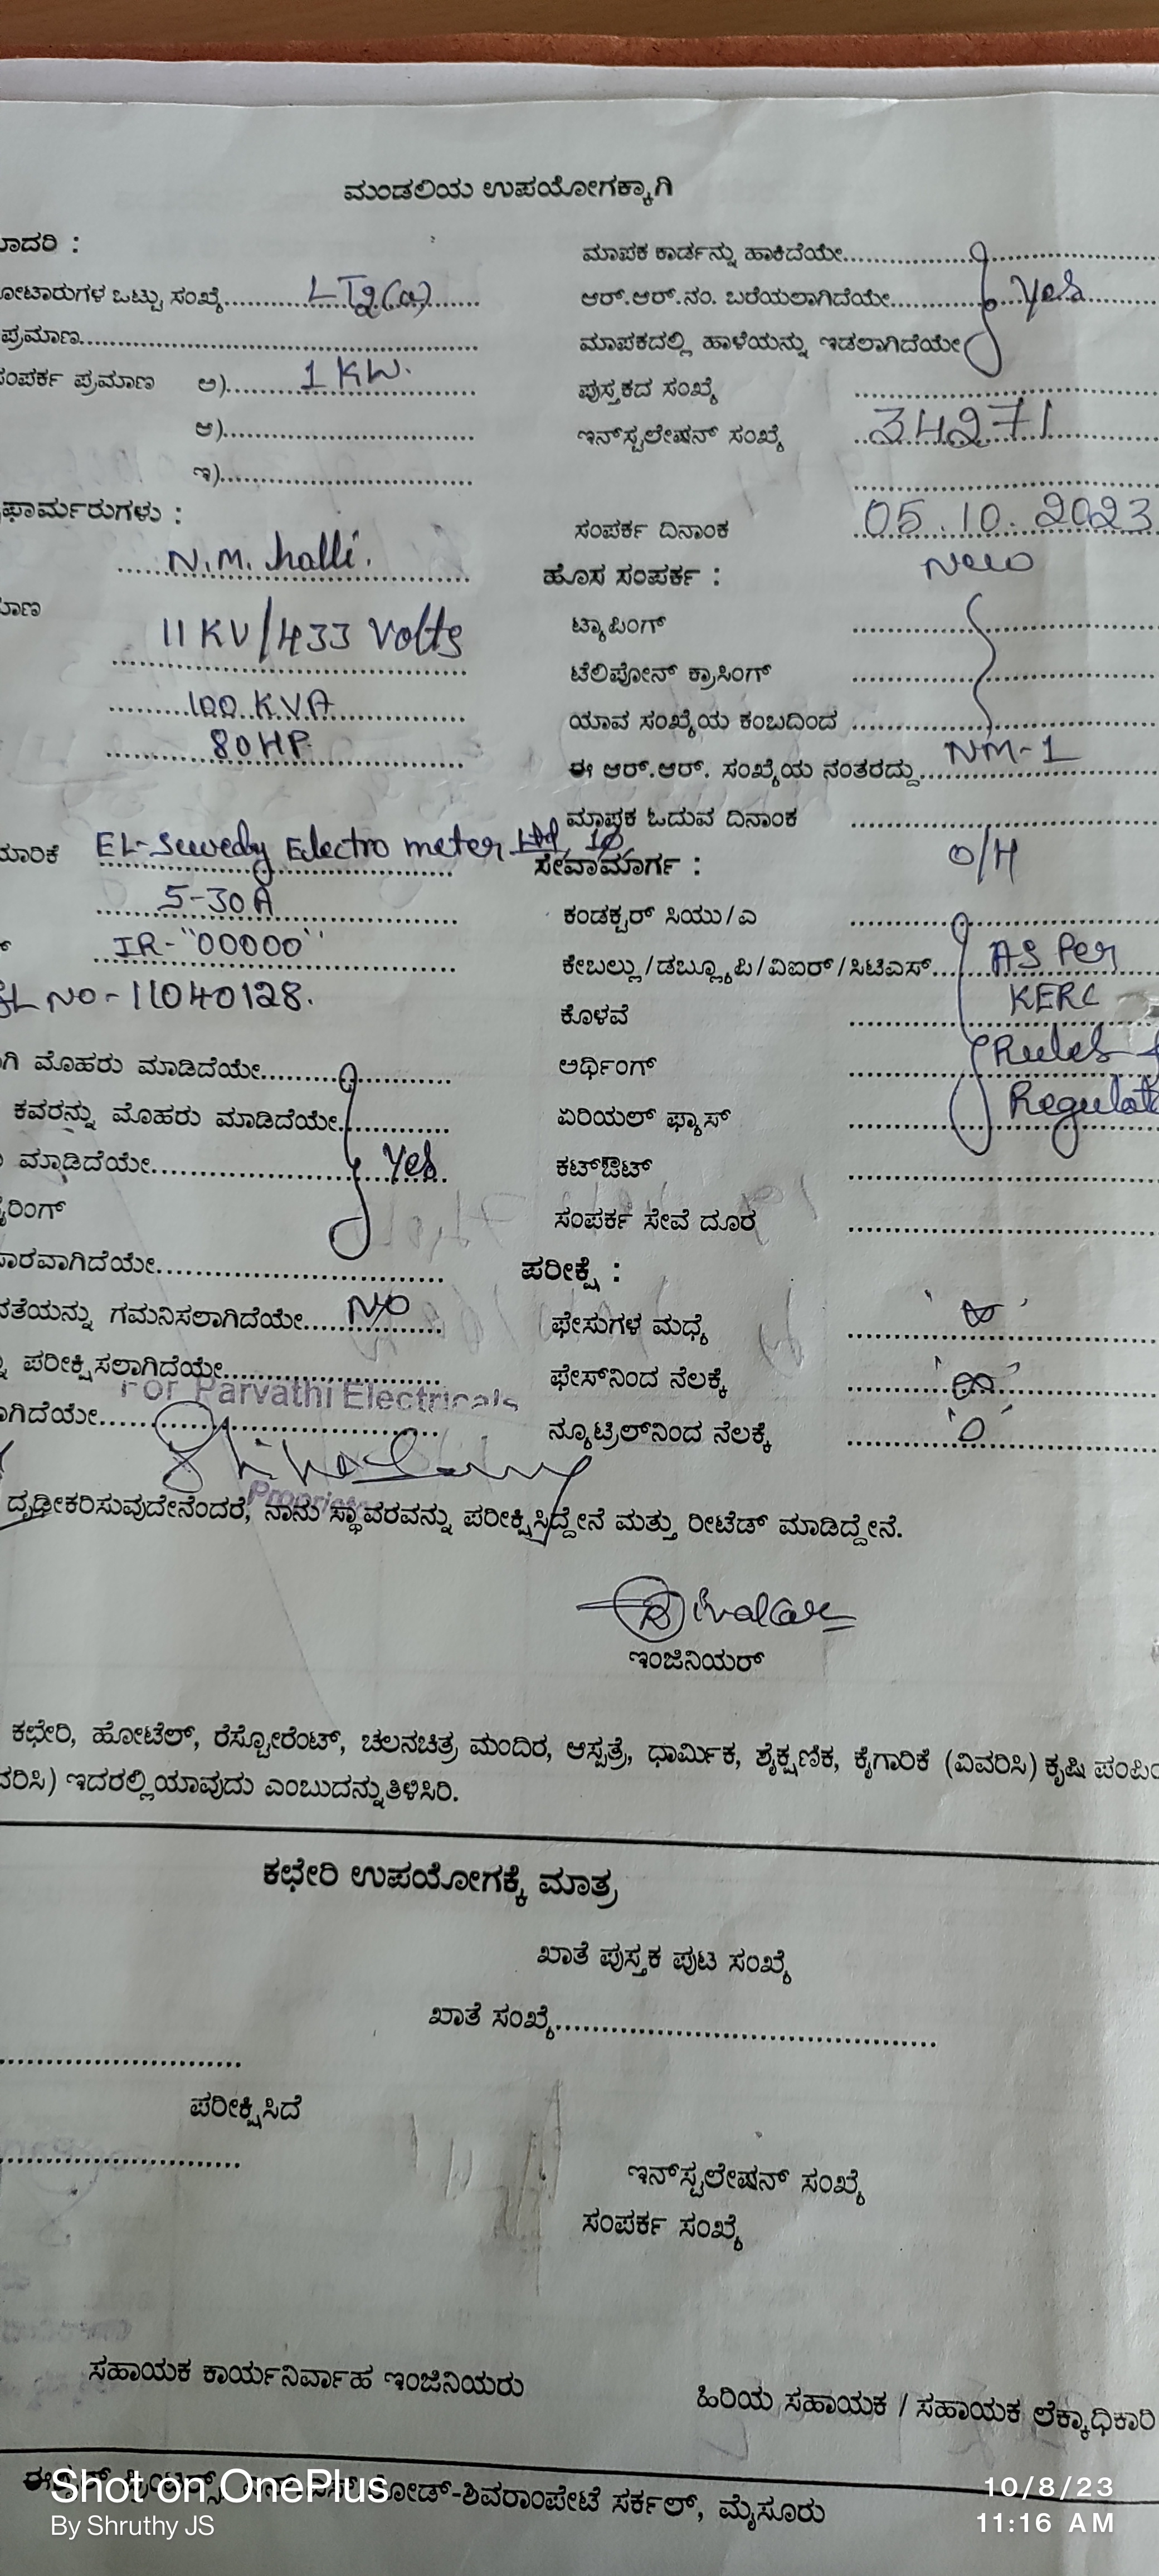 ಮಂಡಲಿಯ ಉಪಯೋಗಕ್ಕಾಗಿ
ಾದರಿ :
ೋಟಾರುಗಳ ಒಟ್ಟು ಸಂಖ್ಯೆ............ LT2(a)
ಪ್ರಮಾಣ
ಸಂಪರ್ಕ ಪ್ರಮಾಣ ಅ) 1 KW.
ಆ)
ಇ)
ಫಾರ್ಮರುಗಳು :
N.M. halli.
ಮಾಣ
11 KV/433 Volts
100 KVA
80 HP
EL-Sewedy Electro meter Ltd, 1Ø,
5-30 A
IR-"00000"
SL NO-11040128.
ಗಿ ಮೊಹರು ಮಾಡಿದೆಯೇ
ಕವರನ್ನು ಮೊಹರು ಮಾಡಿದೆಯೇ
ಮಾಡಿದೆಯೇ Yes
ೈರಿಂಗ್
ಸಾರವಾಗಿದೆಯೇ
ನತೆಯನ್ನು ಗಮನಿಸಲಾಗಿದೆಯೇ NO
ಪರೀಕ್ಷಿಸಲಾಗಿದೆಯೇ
For Parvathi Electricals
ಾಗಿದೆಯೇ
ಮಾಪಕ ಕಾರ್ಡನ್ನು ಹಾಕಿದೆಯೇ
ಆರ್.ಆರ್.ನಂ. ಬರೆಯಲಾಗಿದೆಯೇ Yes
ಮಾಪಕದಲ್ಲಿ ಹಾಳೆಯನ್ನು ಇಡಲಾಗಿದೆಯೇ
ಪುಸ್ತಕದ ಸಂಖ್ಯೆ
ಇನ್‌ಸ್ಟಲೇಷನ್ ಸಂಖ್ಯೆ 34271
ಸಂಪರ್ಕ ದಿನಾಂಕ 05.10.2023
ಹೊಸ ಸಂಪರ್ಕ : New
ಟ್ಯಾಪಿಂಗ್
ಟೆಲಿಪೋನ್ ಕ್ರಾಸಿಂಗ್
ಯಾವ ಸಂಖ್ಯೆಯ ಕಂಬದಿಂದ
ಈ ಆರ್.ಆರ್. ಸಂಖ್ಯೆಯ ನಂತರದ್ದು NM-1
ಮಾಪಕ ಓದುವ ದಿನಾಂಕ
ಸೇವಾಮಾರ್ಗ : O/H
ಕಂಡಕ್ಟರ್ ಸಿಯು/ಎ
ಕೇಬಲ್ಲು/ಡಬ್ಲ್ಯೂಪಿ/ವಿಐರ್/ಸಿಟಿಎಸ್ AS Per
ಕೊಳವೆ KERC
ಅರ್ಥಿಂಗ್ Rules
ಏರಿಯಲ್ ಫ್ಯಾಸ್ Regulat
ಕಟ್‌ಔಟ್
ಸಂಪರ್ಕ ಸೇವೆ ದೂರ
ಪರೀಕ್ಷೆ :
ಫೇಸುಗಳ ಮಧ್ಯೆ
ಫೇಸ್‌ನಿಂದ ನೆಲಕ್ಕೆ
ನ್ಯೂಟ್ರಿಲ್‌ನಿಂದ ನೆಲಕ್ಕೆ
ದೃಢೀಕರಿಸುವುದೇನೆಂದರೆ, ನಾನು ಸ್ಥಾವರವನ್ನು ಪರೀಕ್ಷಿಸಿದ್ದೇನೆ ಮತ್ತು ರೀಟೆಡ್ ಮಾಡಿದ್ದೇನೆ.
ಇಂಜಿನಿಯರ್
ಕಛೇರಿ, ಹೋಟೆಲ್, ರೆಸ್ಟೋರೆಂಟ್, ಚಲನಚಿತ್ರ ಮಂದಿರ, ಆಸ್ಪತ್ರೆ, ಧಾರ್ಮಿಕ, ಶೈಕ್ಷಣಿಕ, ಕೈಗಾರಿಕೆ (ವಿವರಿಸಿ) ಕೃಷಿ ಪಂಪಿ
ವರಿಸಿ) ಇದರಲ್ಲಿ ಯಾವುದು ಎಂಬುದನ್ನು ತಿಳಿಸಿರಿ.
ಕಛೇರಿ ಉಪಯೋಗಕ್ಕೆ ಮಾತ್ರ
ಖಾತೆ ಪುಸ್ತಕ ಪುಟ ಸಂಖ್ಯೆ
ಖಾತೆ ಸಂಖ್ಯೆ
ಪರೀಕ್ಷಿಸಿದೆ
ಇನ್‌ಸ್ಟಲೇಷನ್ ಸಂಖ್ಯೆ
ಸಂಪರ್ಕ ಸಂಖ್ಯೆ
ಸಹಾಯಕ ಕಾರ್ಯನಿರ್ವಾಹ ಇಂಜಿನಿಯರು
ಹಿರಿಯ ಸಹಾಯಕ / ಸಹಾಯಕ ಲೆಕ್ಕಾಧಿಕಾರಿ
ರೋಡ್-ಶಿವರಾಂಪೇಟೆ ಸರ್ಕಲ್, ಮೈಸೂರು
Shot on OnePlus
By Shruthy JS
10/8/23
11:16 AM